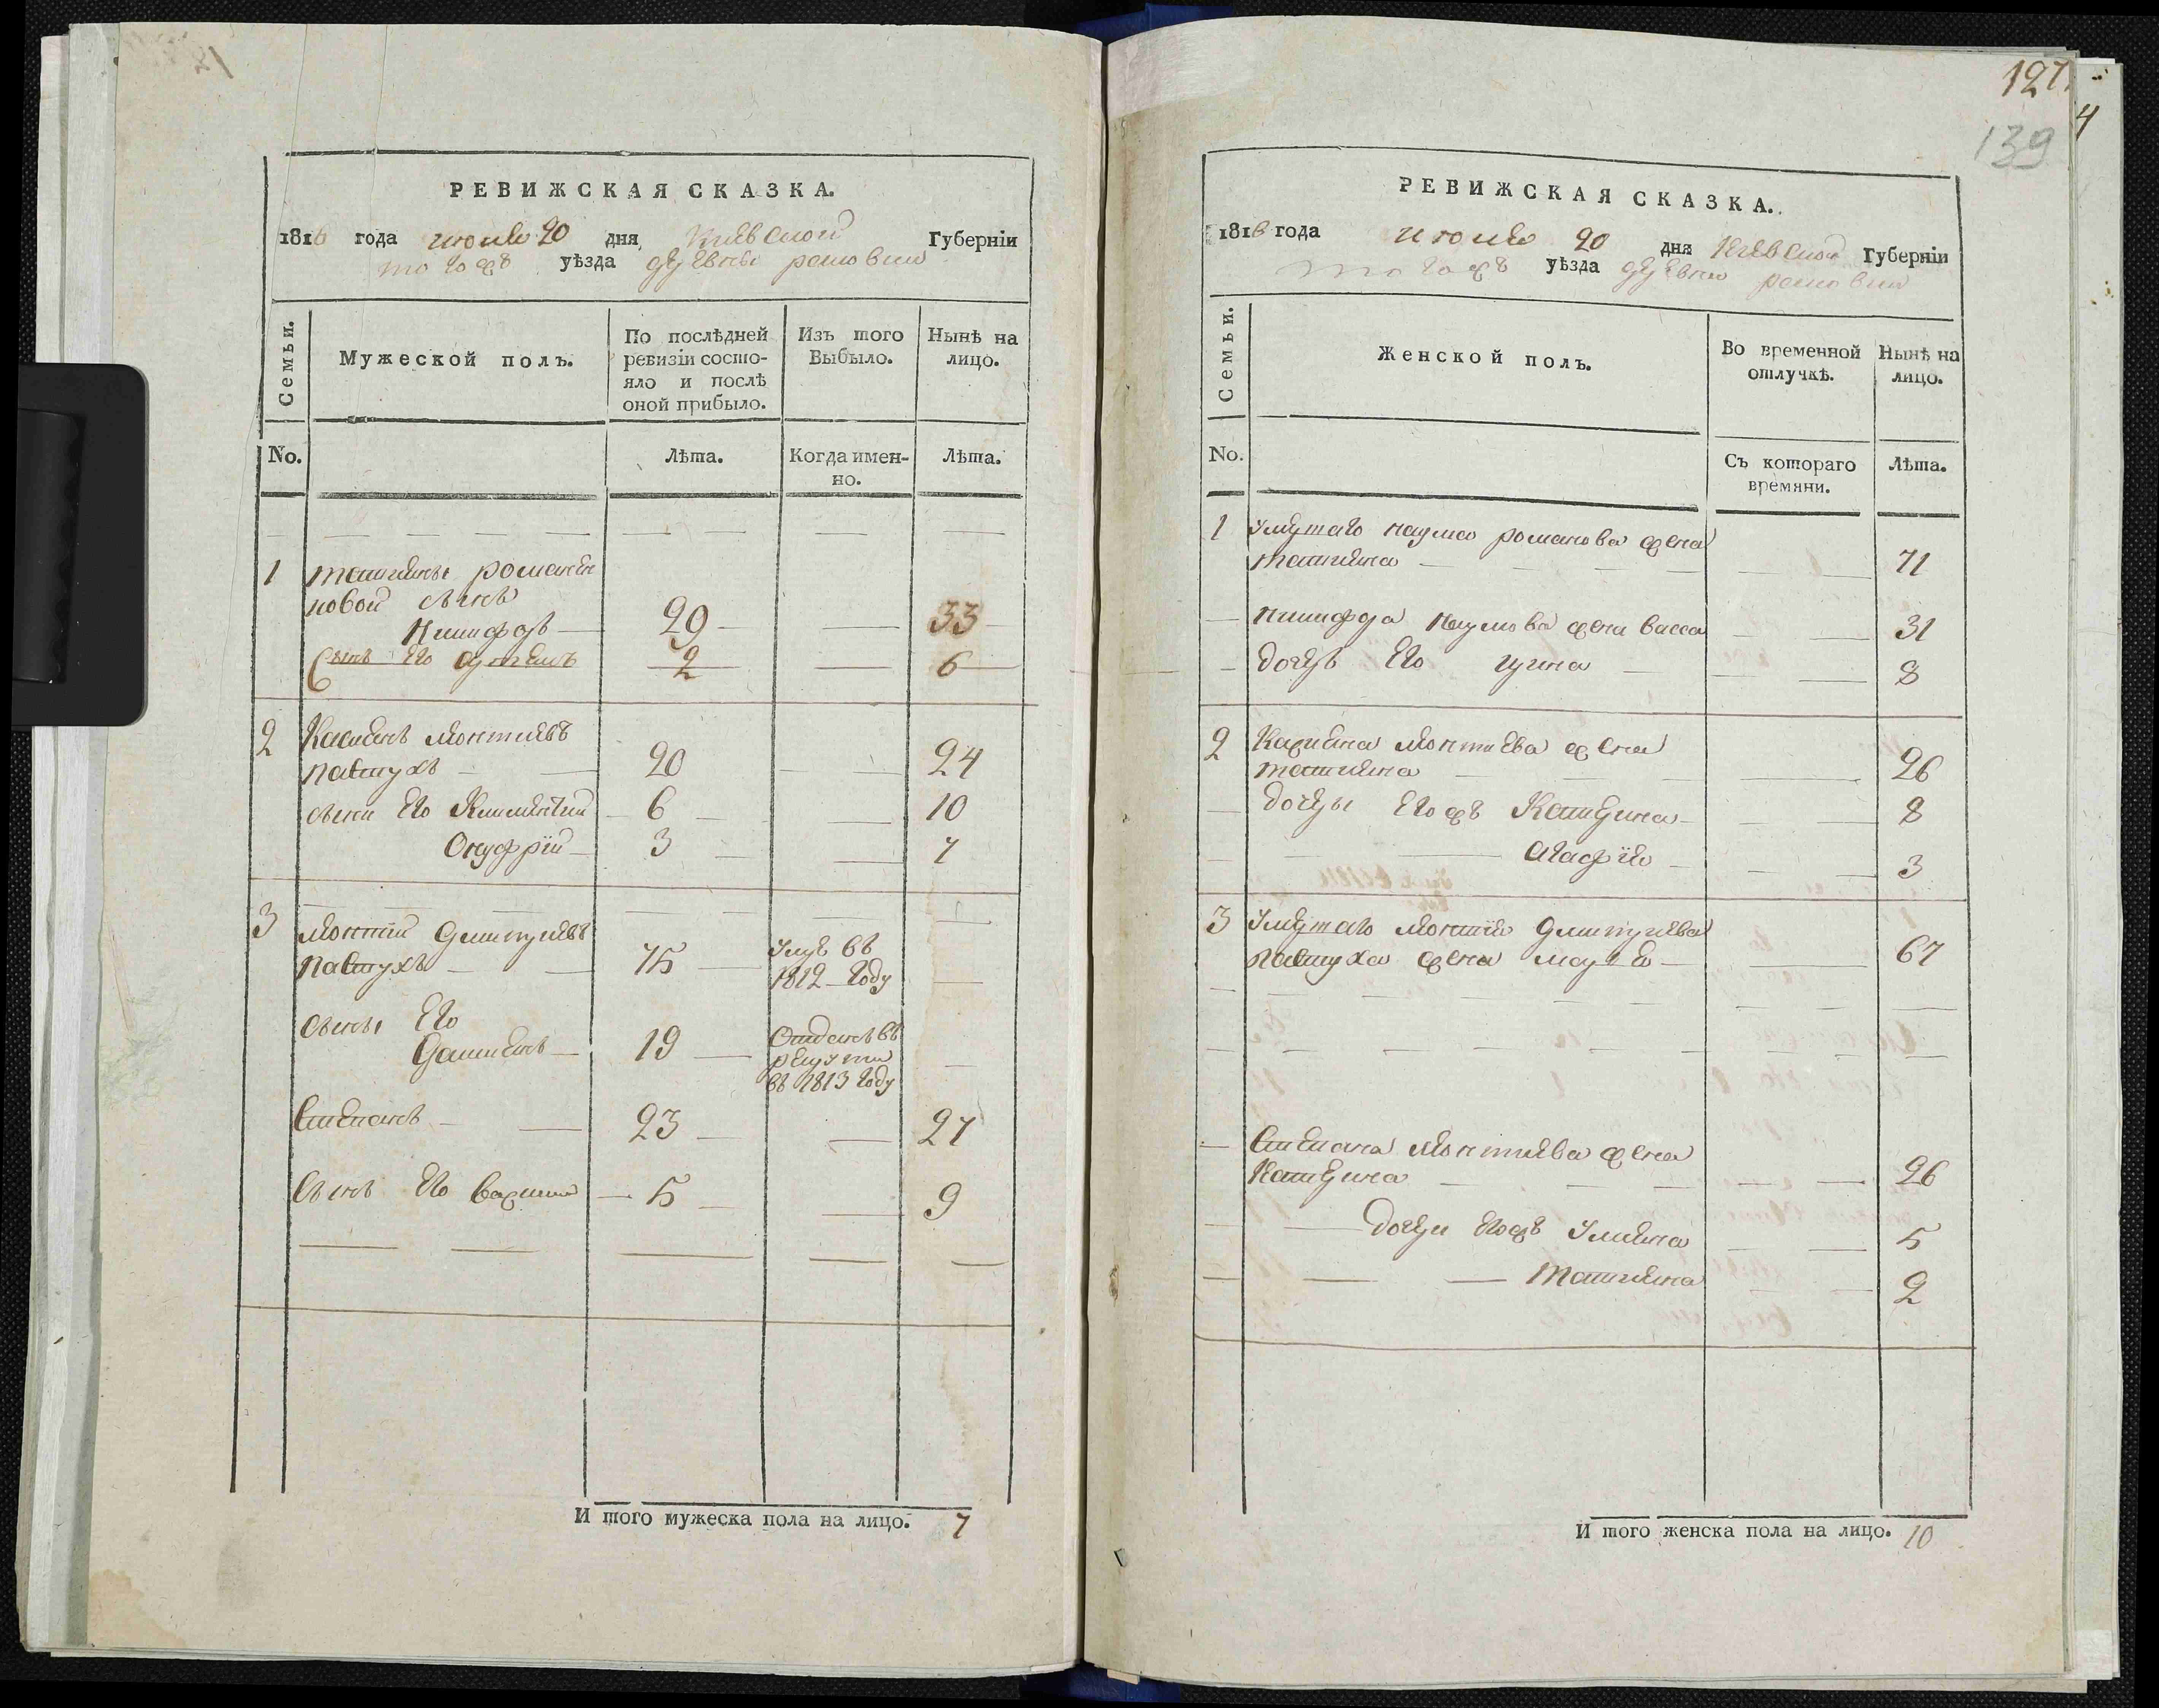 РЕВИЖСКАЯ СКАЗКА.
1816 года июля 20 дня Киевской Губерніи
тогожъ уѣзда деревни
Семьи.
Мужеской полъ.
По послѣдней
ревизіи состо-
яло и послѣ
оной прибыло.
Изъ того
Выбыло.
Нынѣ на
лицо.
No.
Лѣта.
Когда имен-
но.
Лѣта.
1 татияны романен
ковой сынъ
Никифоръ 29 33
Сынъ его 2 6
2 Касиянъ монтиевъ
пастухъ 20 24
сыни его Климентий 6 10
Онуфрій 3 7
3 монтій дмитриевъ
пастухъ 75 умре въ
1812 году
сыны его
19 Отданъ въ
рекрути
въ 1813 году
Степанъ 23 27
Сынъ его 5 9
И того мужеска пола на лицо. 7
127
139
4
РЕВИЖСКАЯ СКАЗКА.
1816 года июля 20 дня Киевской Губерніи
тогожъ уѣзда деревни
Семьи.
Женской полъ.
Во временной
отлучкѣ.
Нынѣ на
лицо.
No.
Съ котораго
времяни.
Лѣта.
1 умершаго наума романова жена
татияна 71
никифора наумова жена васса 31
дочерь его ирина 8
2 Касияна монтиева жена
татияна 26
дочеры его жъ Катерина 8
агафія 3
3 умершаго монтия дмитриева
пастуха жена мария 67
Степана монтиева жена
Катерина 26
дочери егожъ улияна 5
татияна 2
И того женска пола на лицо. 10